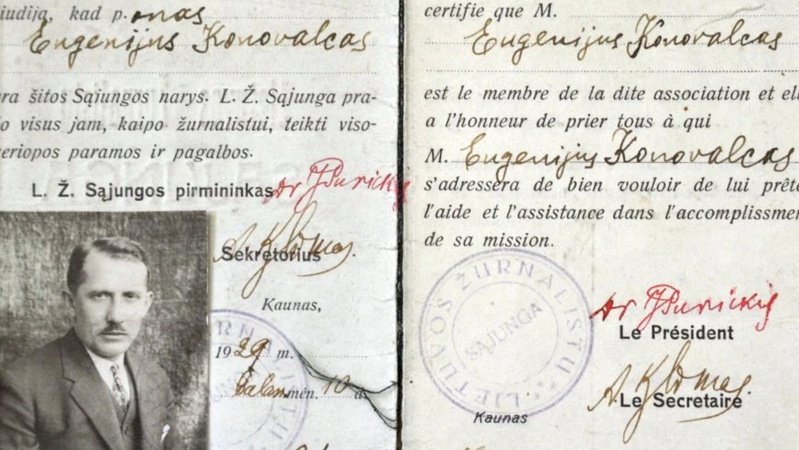 iudija, kad p. onas
Eugenijus Konovalcas
ra šitos Sąjungos narys. L. Ž. Sąjunga pra-
o visus jam, kaipo žurnalistui, teikti viso-
eriopos paramos ir pagalbos.
L. Ž. Sąjungos pirmininkas
Sekretorius
Kaunas,
1929 m.
mėn. 10 d.
certifie que M.
Eugenijus Konovalcas
est le membre de la dite association et ell
a l'honneur de prier tous à qui
M. Eugenijus Konovalcas
s'adressera de bien vouloir de lui prête
l'aide et l'assistance dans l'accomplissmen
de sa mission.
LIETUVOS ŽURNALISTŲ
SĄJUNGA
dr JPurickis
Le Président
Le Secretaire
Kaunas